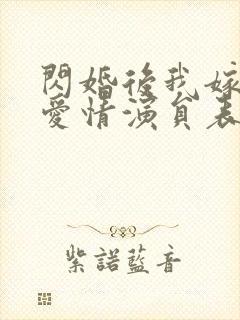 閃婚後我嫁
愛情演員表
紫諾藍音